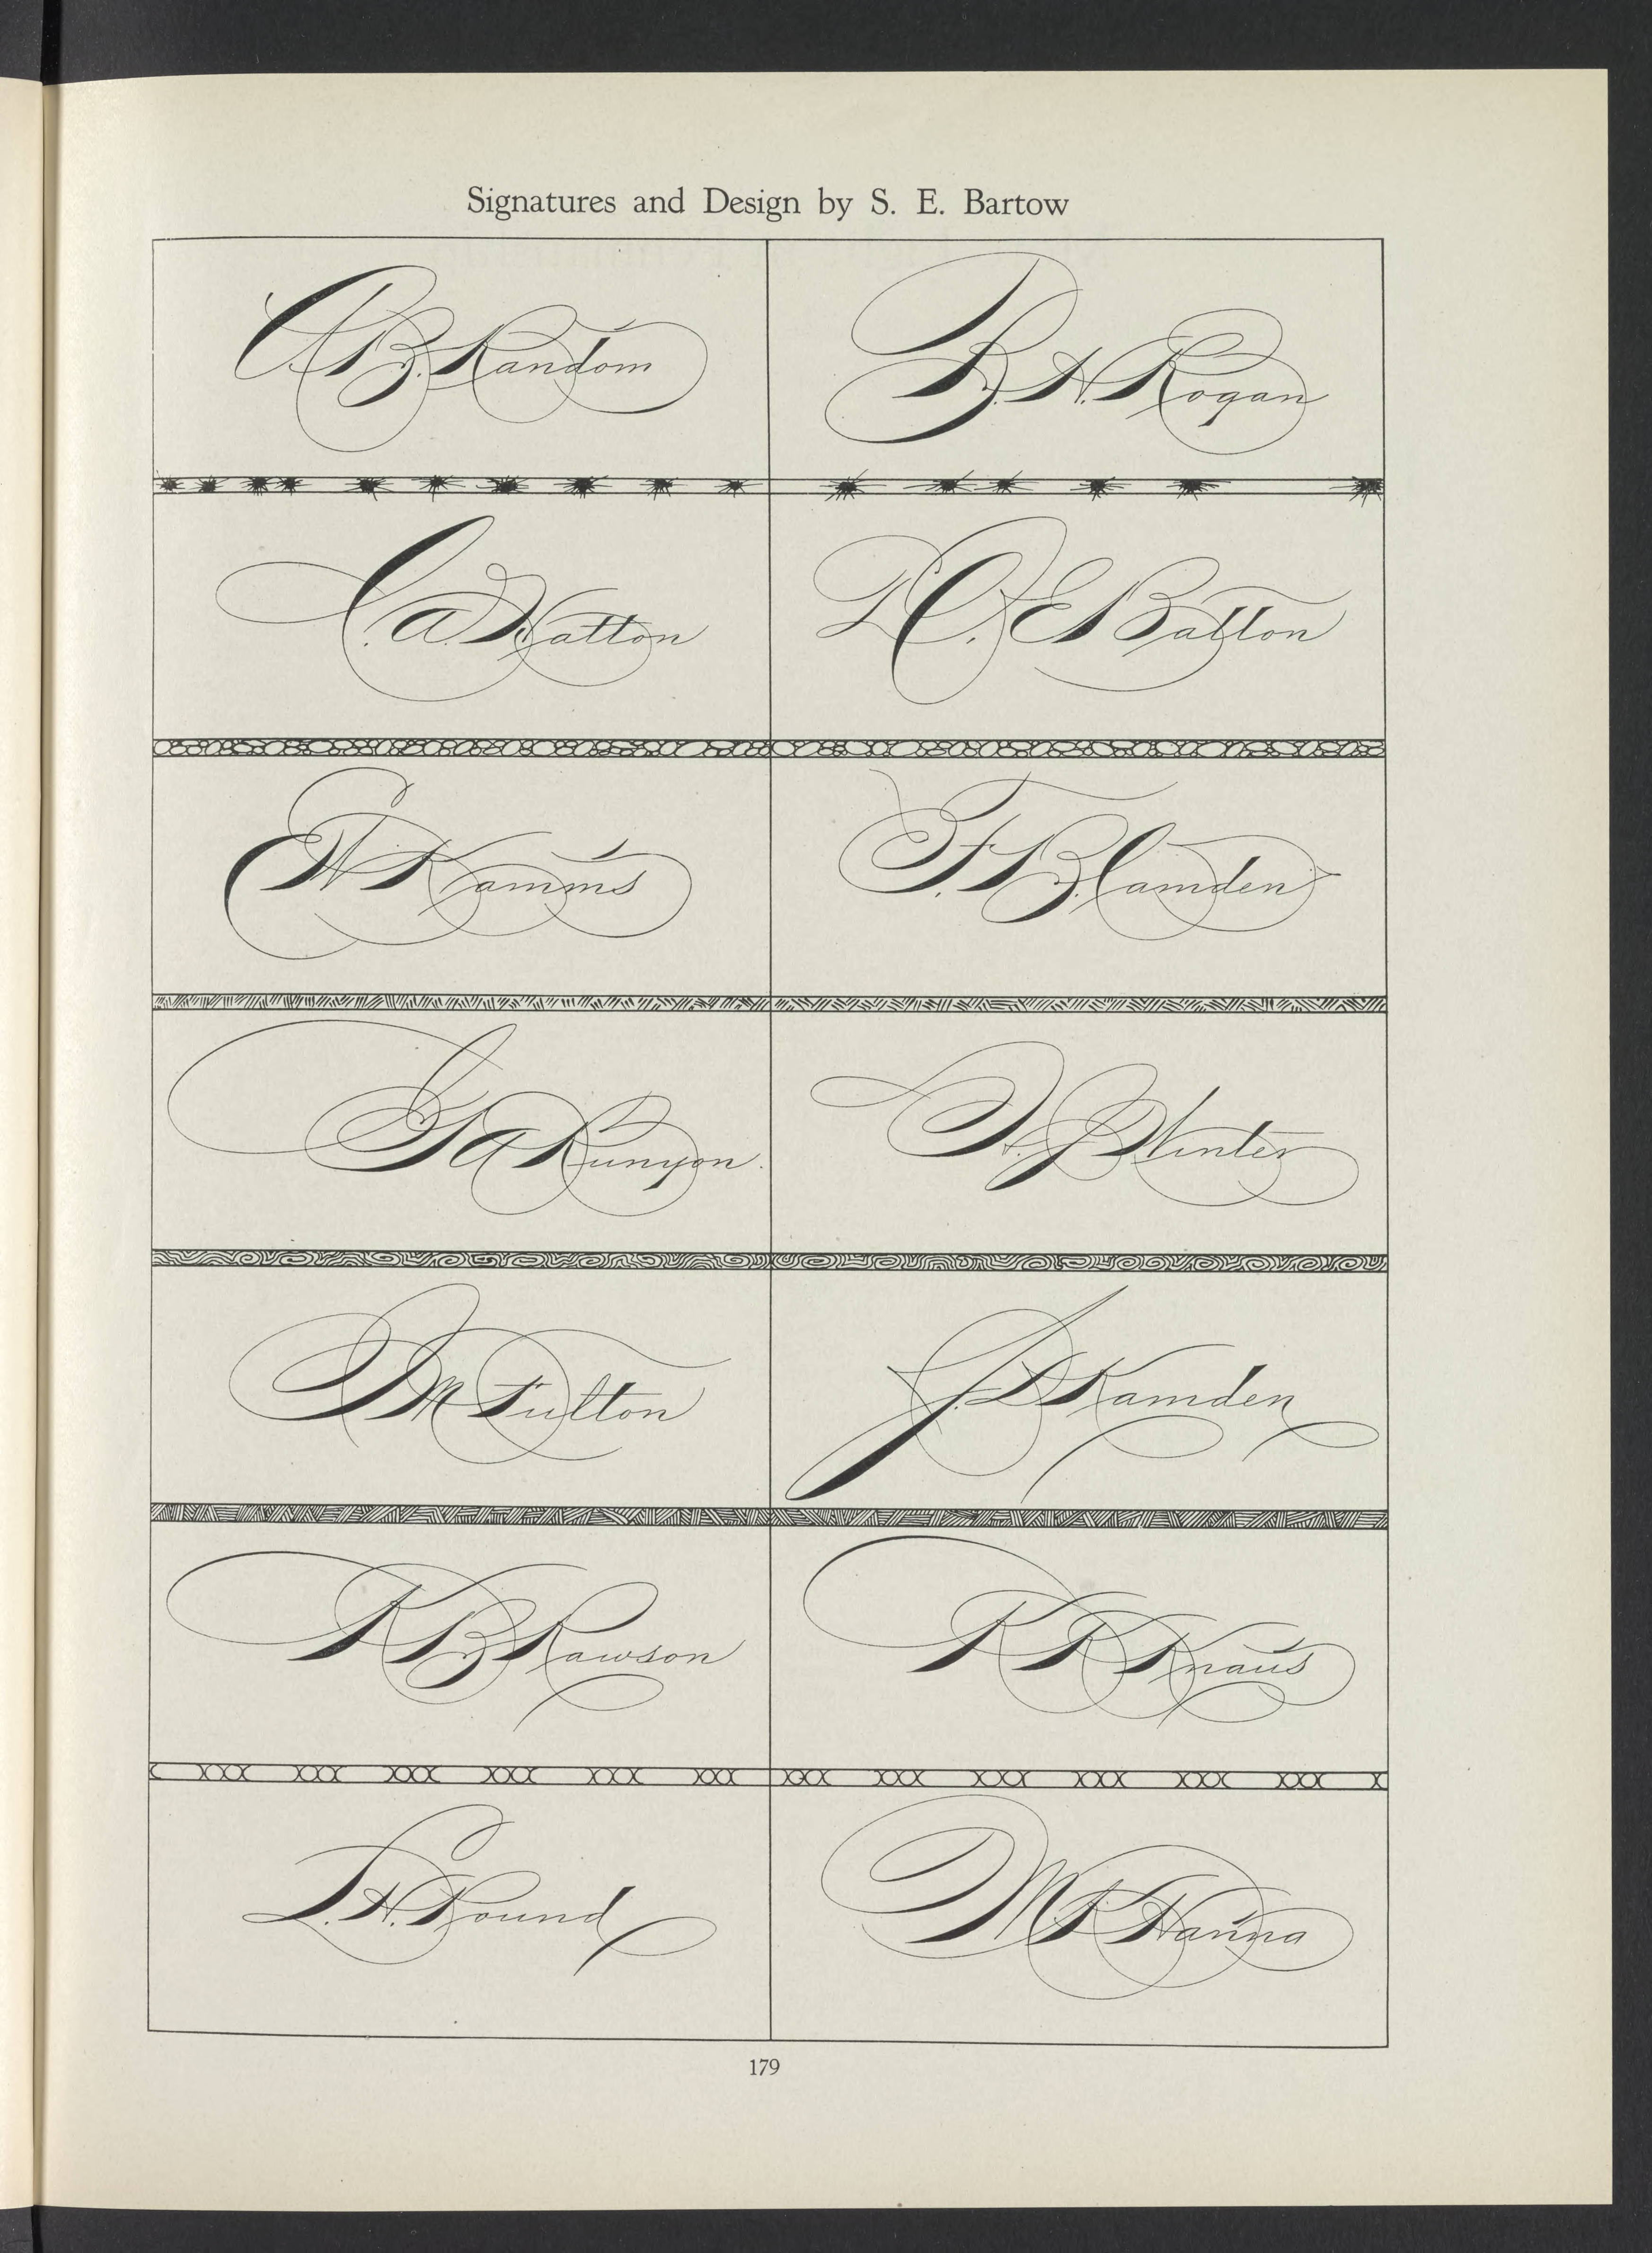 Signatures and Design by S. E. Bartow
A B. Random
B. H. Rogan
C. A. Hatton
D C. E Batton
E W Kamms
F. B. Camden
G A Runyon.
H. J. Winter
I M Fulton
J. D Kamden
K B Rawson
K R Knaus
L. H. Pound
M R Hanna
179